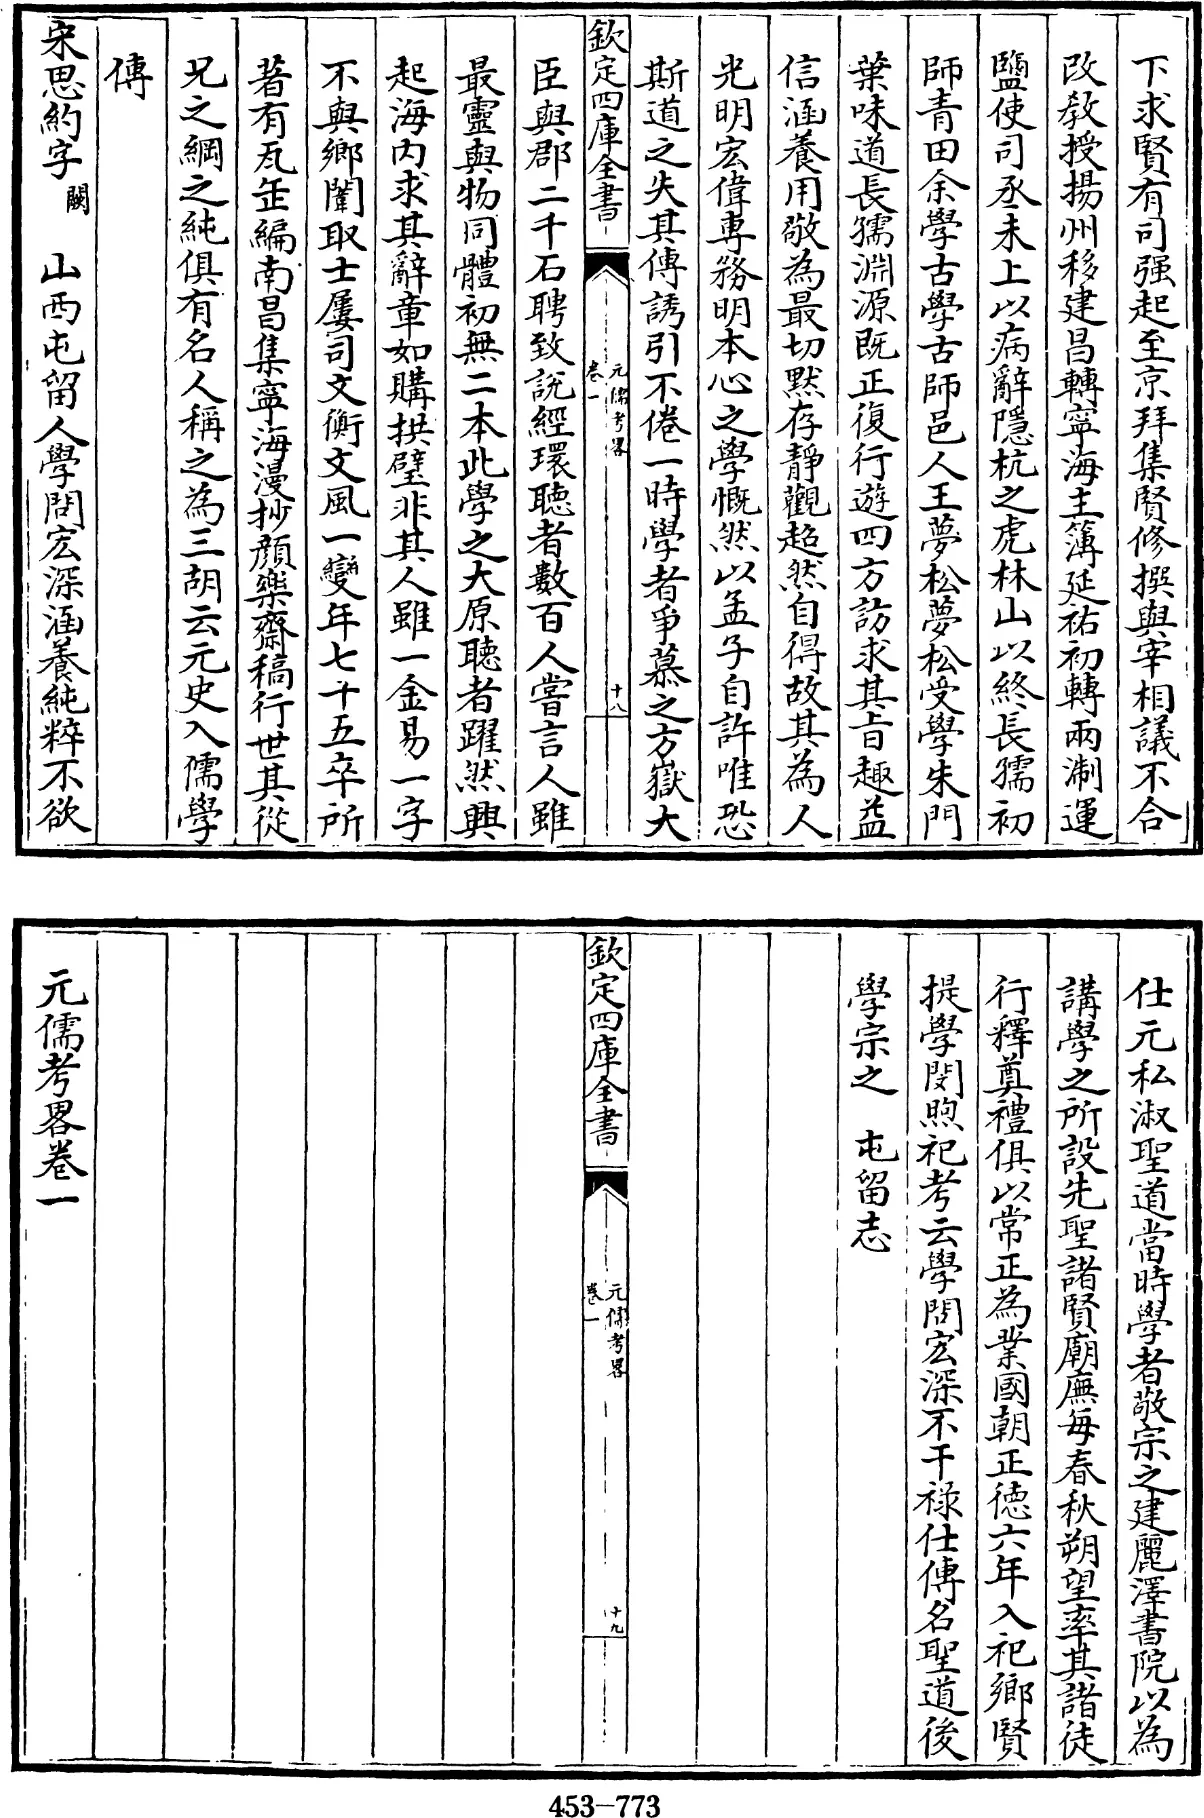 下求賢有司强起至京拜集賢修撰與宰相議不合
改教授揚州移建昌轉寧海主簿延祐初轉兩淛運
鹽使司丞未上以病辭隱杭之虎林山以終長孺初
師青田余學古學古師邑人王夢松夢松受學朱門
葉味道長孺淵源既正復行遊四方訪求其旨趣益
信涵養用敬為最切默存靜觀超然自得故其為人
光明宏偉專務明本心之學慨然以孟子自許唯恐
斯道之失其傳誘引不倦一時學者爭慕之方嶽大
欽定四庫全書
元儒考畧
卷一
十八
臣與郡二千石聘致說經環聽者數百人嘗言人雖
最靈與物同體初無二本此學之大原聽者躍然興
起海内求其辭章如購拱璧非其人雖一金易一字
不與鄉闈取士屢司文衡文風一變年七十五卒所
著有瓦缶編南昌集寧海漫抄顔樂齋稿行世其從
兄之綱之純俱有名人稱之為三胡云元史入儒學
傳
宋思約字闕 山西屯留人學問宏深涵養純粹不欲
仕元私淑聖道當時學者敬宗之建麗澤書院以為
講學之所設先聖諸賢廟廡每春秋朔望率其諸徒
行釋奠禮俱以常正為業國朝正德六年入祀鄉賢
提學閔煦祀考云學問宏深不干祿仕傳名聖道後
學宗之 屯留志
欽定四庫全書
元儒考畧
卷一
十九
元儒考畧卷一
453-773